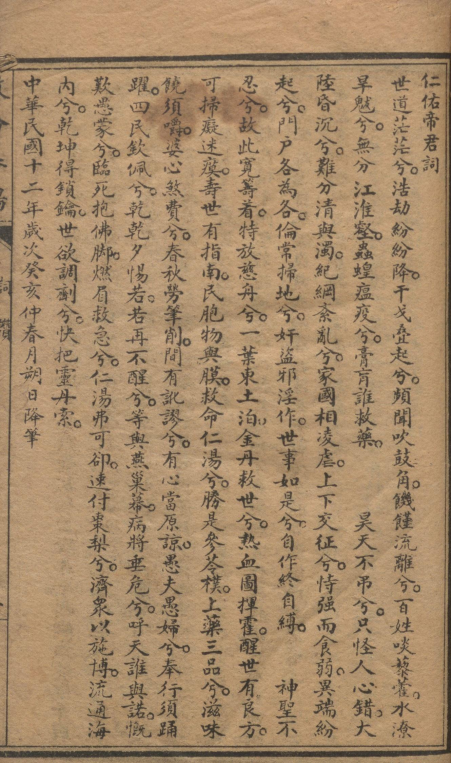 仁佑帝君詞
世道茫茫兮。浩劫紛紛降。干戈疊起兮。頻聞吹鼓角。饑饉流離兮。百姓啖藜藿。水潦
旱魃兮。無分江淮壑。蟲蝗瘟疫兮。膏肓誰救藥。 昊天不弔兮。只怪人心錯。大
陸昏沉兮。難分清與濁。紀綱紊亂兮。家國相凌虐。上下交征兮。恃强而食弱。異端紛
起兮。門戶各為各。倫常掃地兮。奸盜邪淫作。世事如是兮。自作終自縛。 神聖不
忍兮。故此寬籌着。特放慈舟兮。一葉東土泊。金丹救世兮。熱血圖揮霍。醒世有良方。
可掃癡迷瘼。壽世有指南。民胞物與膜。救命仁湯兮。勝是參苓樸。上藥三品兮。滋味
饒須嚼。婆心煞費兮。春秋勞筆削。間有訛謬兮。有心當原諒。愚夫愚婦兮。奉行須踴
躍。四民欽佩兮。乾乾夕惕若。若再不醒兮。等與燕巢幕。病將垂危兮。呼天誰與諾。慨
歎愚蒙兮。臨死抱佛脚。燃眉救急兮。仁湯弗可卻。速付棗梨兮。濟衆以施博。流通海
内兮。乾坤得鎖鑰。世欲調劑兮。快把靈丹索。
中華民國十二年歲次癸亥仲春月朔日降筆